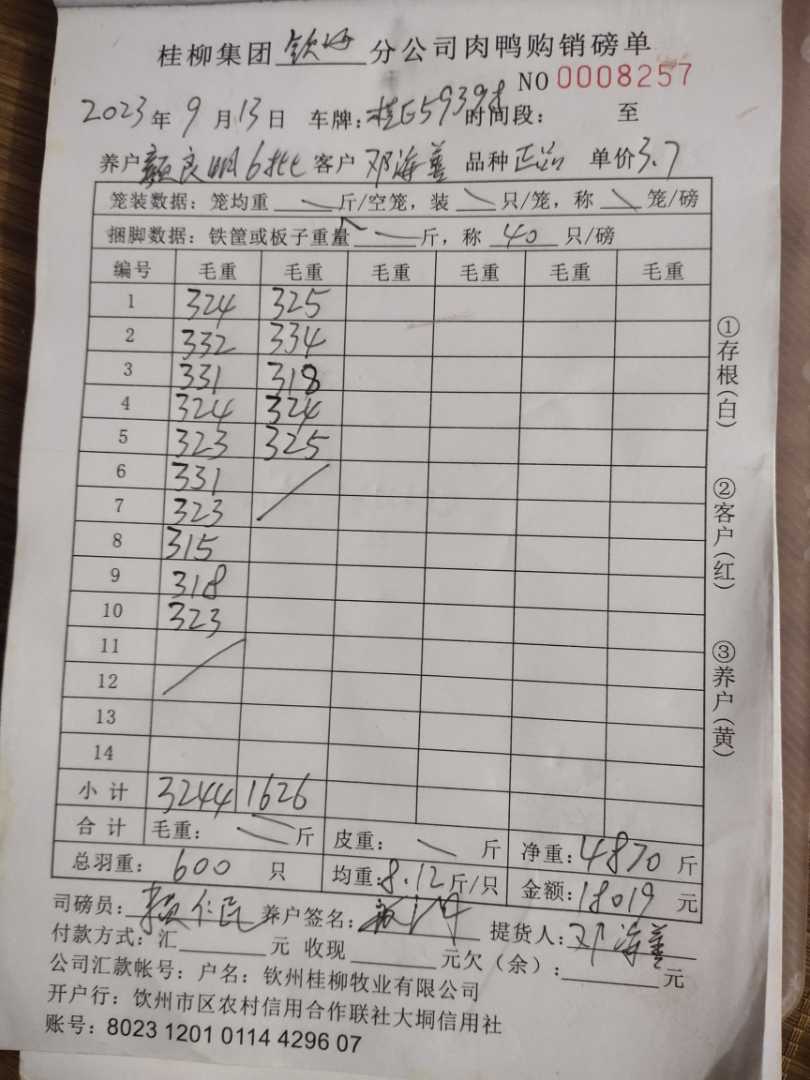 桂柳集团 钦海 分公司肉鸭购销磅单
NO 0008257
2023年9月13日 车牌:桂E59398 时间段: 至
养户 颜良明6批 客户 邓海善 品种 正品 单价3.7
笼装数据:笼均重 斤/空笼,装 只/笼,称 笼/磅
捆脚数据:铁筐或板子重量 斤,称 40 只/磅
编号 毛重 毛重 毛重 毛重 毛重 毛重
1 324 325
2 332 334
3 331 318
4 324 324
5 323 325
6 331
7 323
8 315
9 318
10 323
11
12
13
14
小计 3244 1626
合计 毛重: 斤 皮重: 斤 净重:4870斤
总羽重: 600 只 均重:8.12斤/只 金额:18019元
司磅员: 仁民 养户签名: 提货人:邓海善
付款方式:汇 元 收现 元欠(余): 元
公司汇款帐号:户名:钦州桂柳牧业有限公司
开户行:饮州市区农村信用合作联社大垌信用社
账号:8023 1201 0114 4296 07
①存根(白)
②客户(红)
③养户(黄)